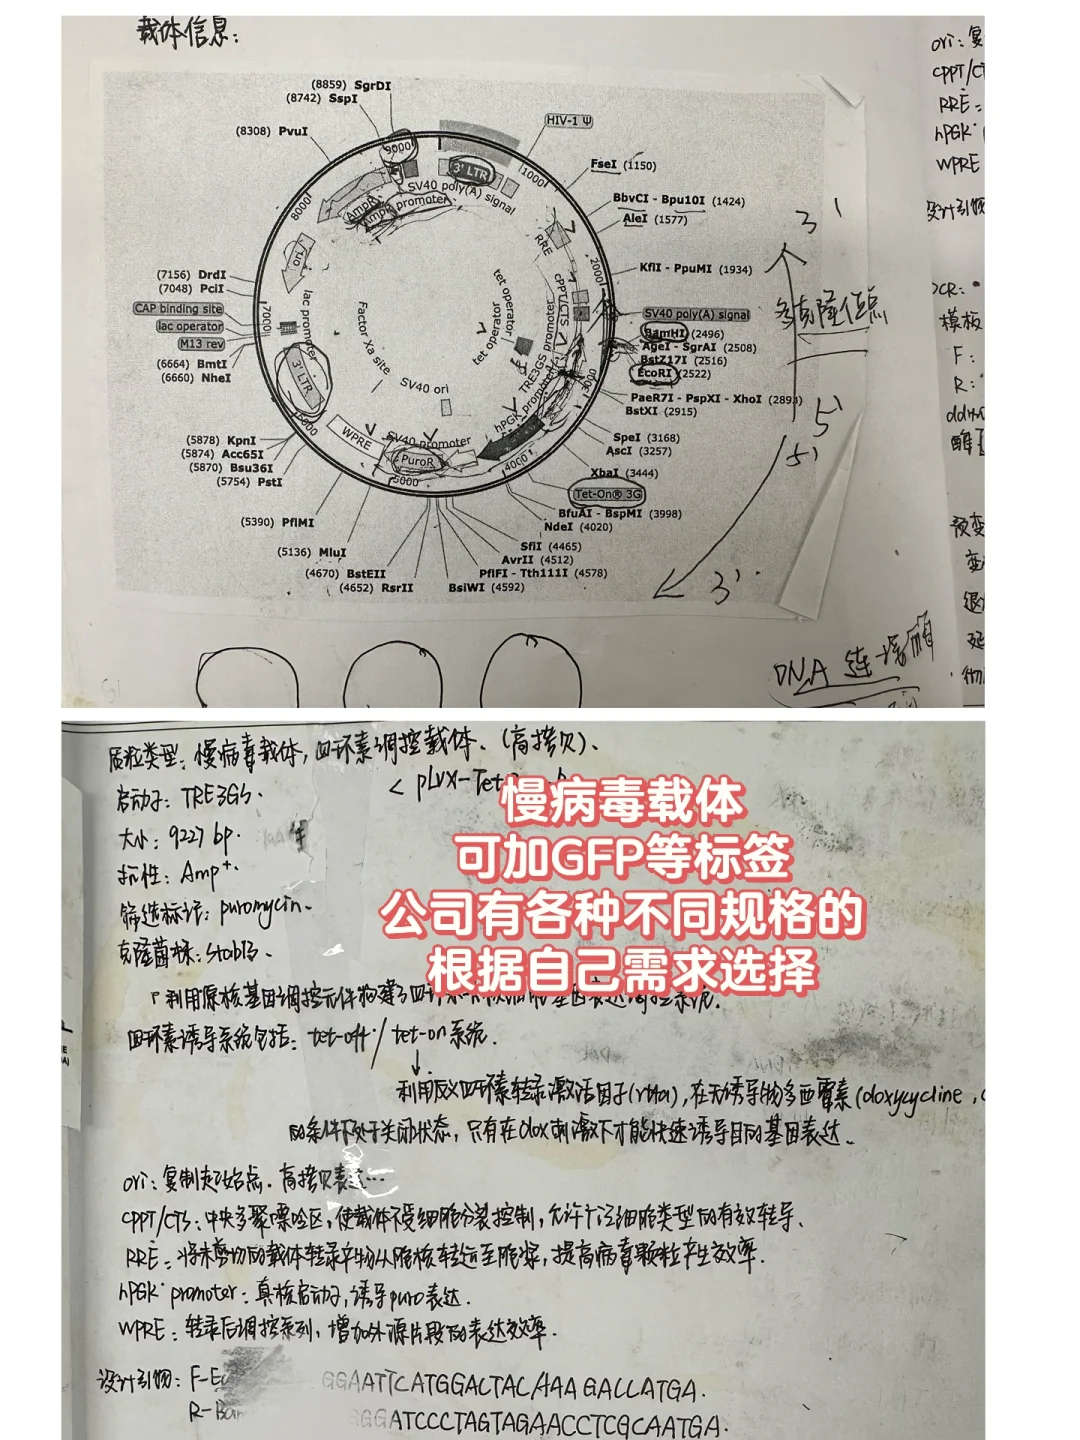 载体信息:
(8859) SgrDI
(8742) SspI
(8308) PvuI
HIV-1 Ψ
9000
3' LTR
1000
SV40 poly(A) signal
AmpR promoter
AmpR
8000
FseI (1150)
BbvCI - Bpu10I (1424)
AleI (1577)
RRE
KflI - PpuMI (1934)
2000
cPPT/CTS
ori
(7156) DrdI
(7048) PciI
CAP binding site
lac operator
M13 rev
(6664) BmtI
(6660) NheI
7000
lac promoter
Factor Xa site
tet operator
tet operator
SV40 poly(A) signal
BamHI (2496)
AgeI - SgrAI (2508)
BstZ17I (2516)
EcoRI (2522)
TRE3GS promoter
3000
PaeR7I - PspXI - XhoI (2893)
BstXI (2915)
SpeI (3168)
AscI (3257)
XbaI (3444)
Tet-On® 3G
BfuAI - BspMI (3998)
NdeI (4020)
hPGK promoter
4000
SV40 ori
SV40 promoter
PuroR
5000
WPRE
3' LTR
6000
(5878) KpnI
(5874) Acc65I
(5870) Bsu36I
(5754) PstI
(5390) PflMI
(5136) MluI
(4670) BstEII
(4652) RsrII
SfiI (4465)
AvrII (4512)
PflFI - Tth111I (4578)
BsiWI (4592)
3'
多克隆位点
5'
5'
3'
DNA 连接
ori: 复
cPPT/CT
RRE:
hPGK
WPRE
设计引物
PCR:
模板
F:
R:
ddH
酶
预变
变
退
延
质粒类型: 慢病毒载体, 四环素调控载体. (高拷贝).
< pLVX-Tet
启动子: TRE3GS.
大小: 9227 bp.
抗性: Amp+.
筛选标记: puromycin.
克隆菌株: Stabl3.
慢病毒载体
可加GFP等标签
公司有各种不同规格的
根据自己需求选择
利用原核基因调控元件构建了四环素
基因表达调控系统.
四环素诱导系统包括: tet-off / tet-on系统.
利用反义四环素转录激活因子(rtta), 在无诱导物多西霉素(doxycycline,
的条件下处于关闭状态, 只有在dox刺激下才能快速诱导目的基因表达.
ori: 复制起始点. 高拷贝表达...
cPPT/CTS: 中央多聚嘌呤区, 使载体不受细胞分裂控制, 允许广泛细胞类型的有效转导.
RRE: 将未剪切的载体转录产物从胞核转运至胞浆, 提高病毒颗粒产生效率.
hPGK promoter: 真核启动子, 诱导puro表达.
WPRE: 转录后调控系列, 增加外源片段的表达效率.
设计引物: F-E
GGAATTCATGGACTACAAAGACCATGA.
R-Bam
GGGATCCCTAGTAGAACCTCGCAATGA.